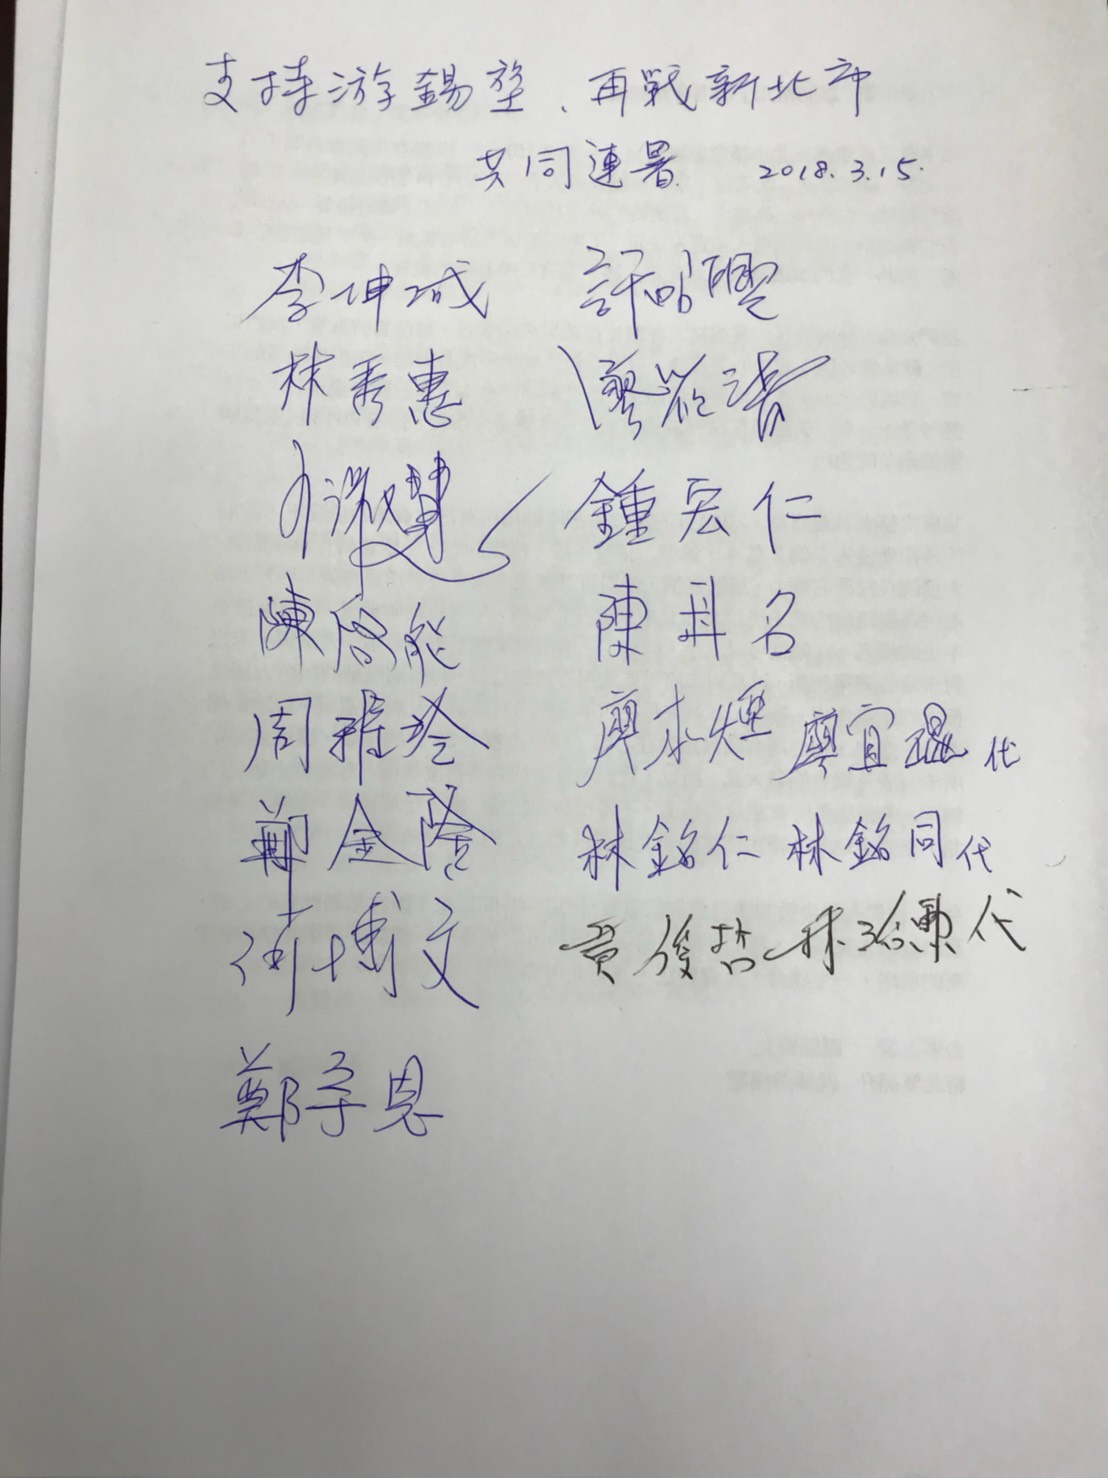 支持游錫堃、再戰新北市
共同連署 2018.3.15.
李坤城 許昭興
林秀惠 廖筱清
淑慧 鍾宏仁
陳啓能 陳科名
周雅玲 廖本煙 廖宜琨代
鄭金隆 林銘仁 林銘同代
何博文 黃俊哲 代
鄭宇恩